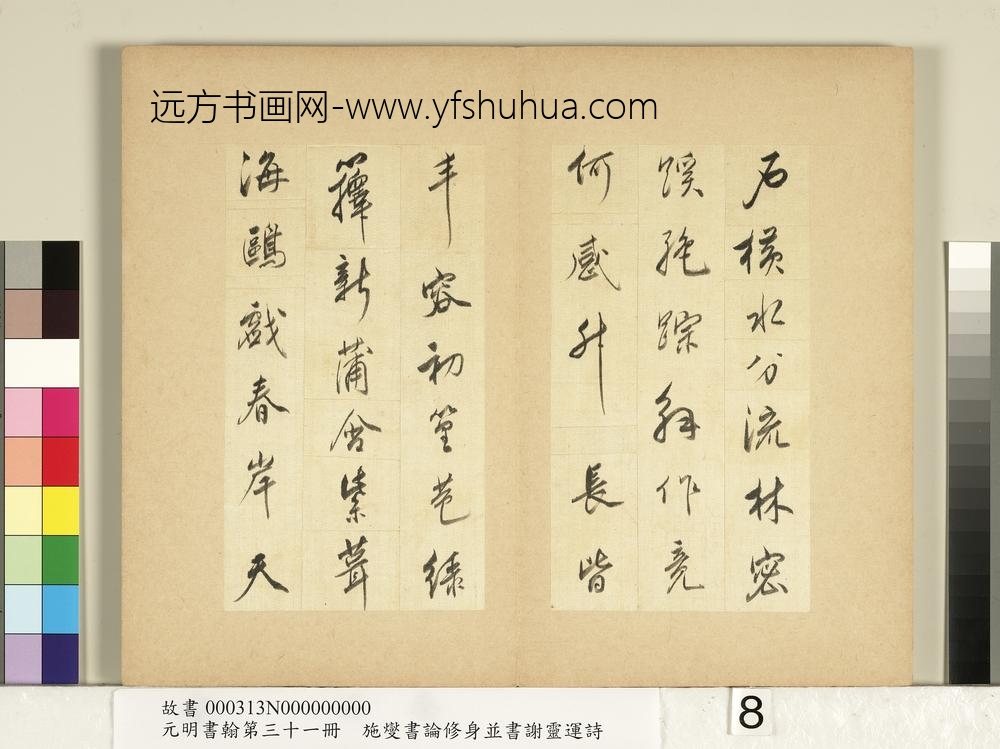 远方书画网-www.yfshuhua.com
石橫水分流林密
蹊絶蹤解作竟
何感升長皆
丰容初篁苞綠
籜新蒲含紫茸
海鷗戲春岸天
故書 000313N000000000
元明書翰第三十一冊 施燮書論修身並書謝靈運詩
8